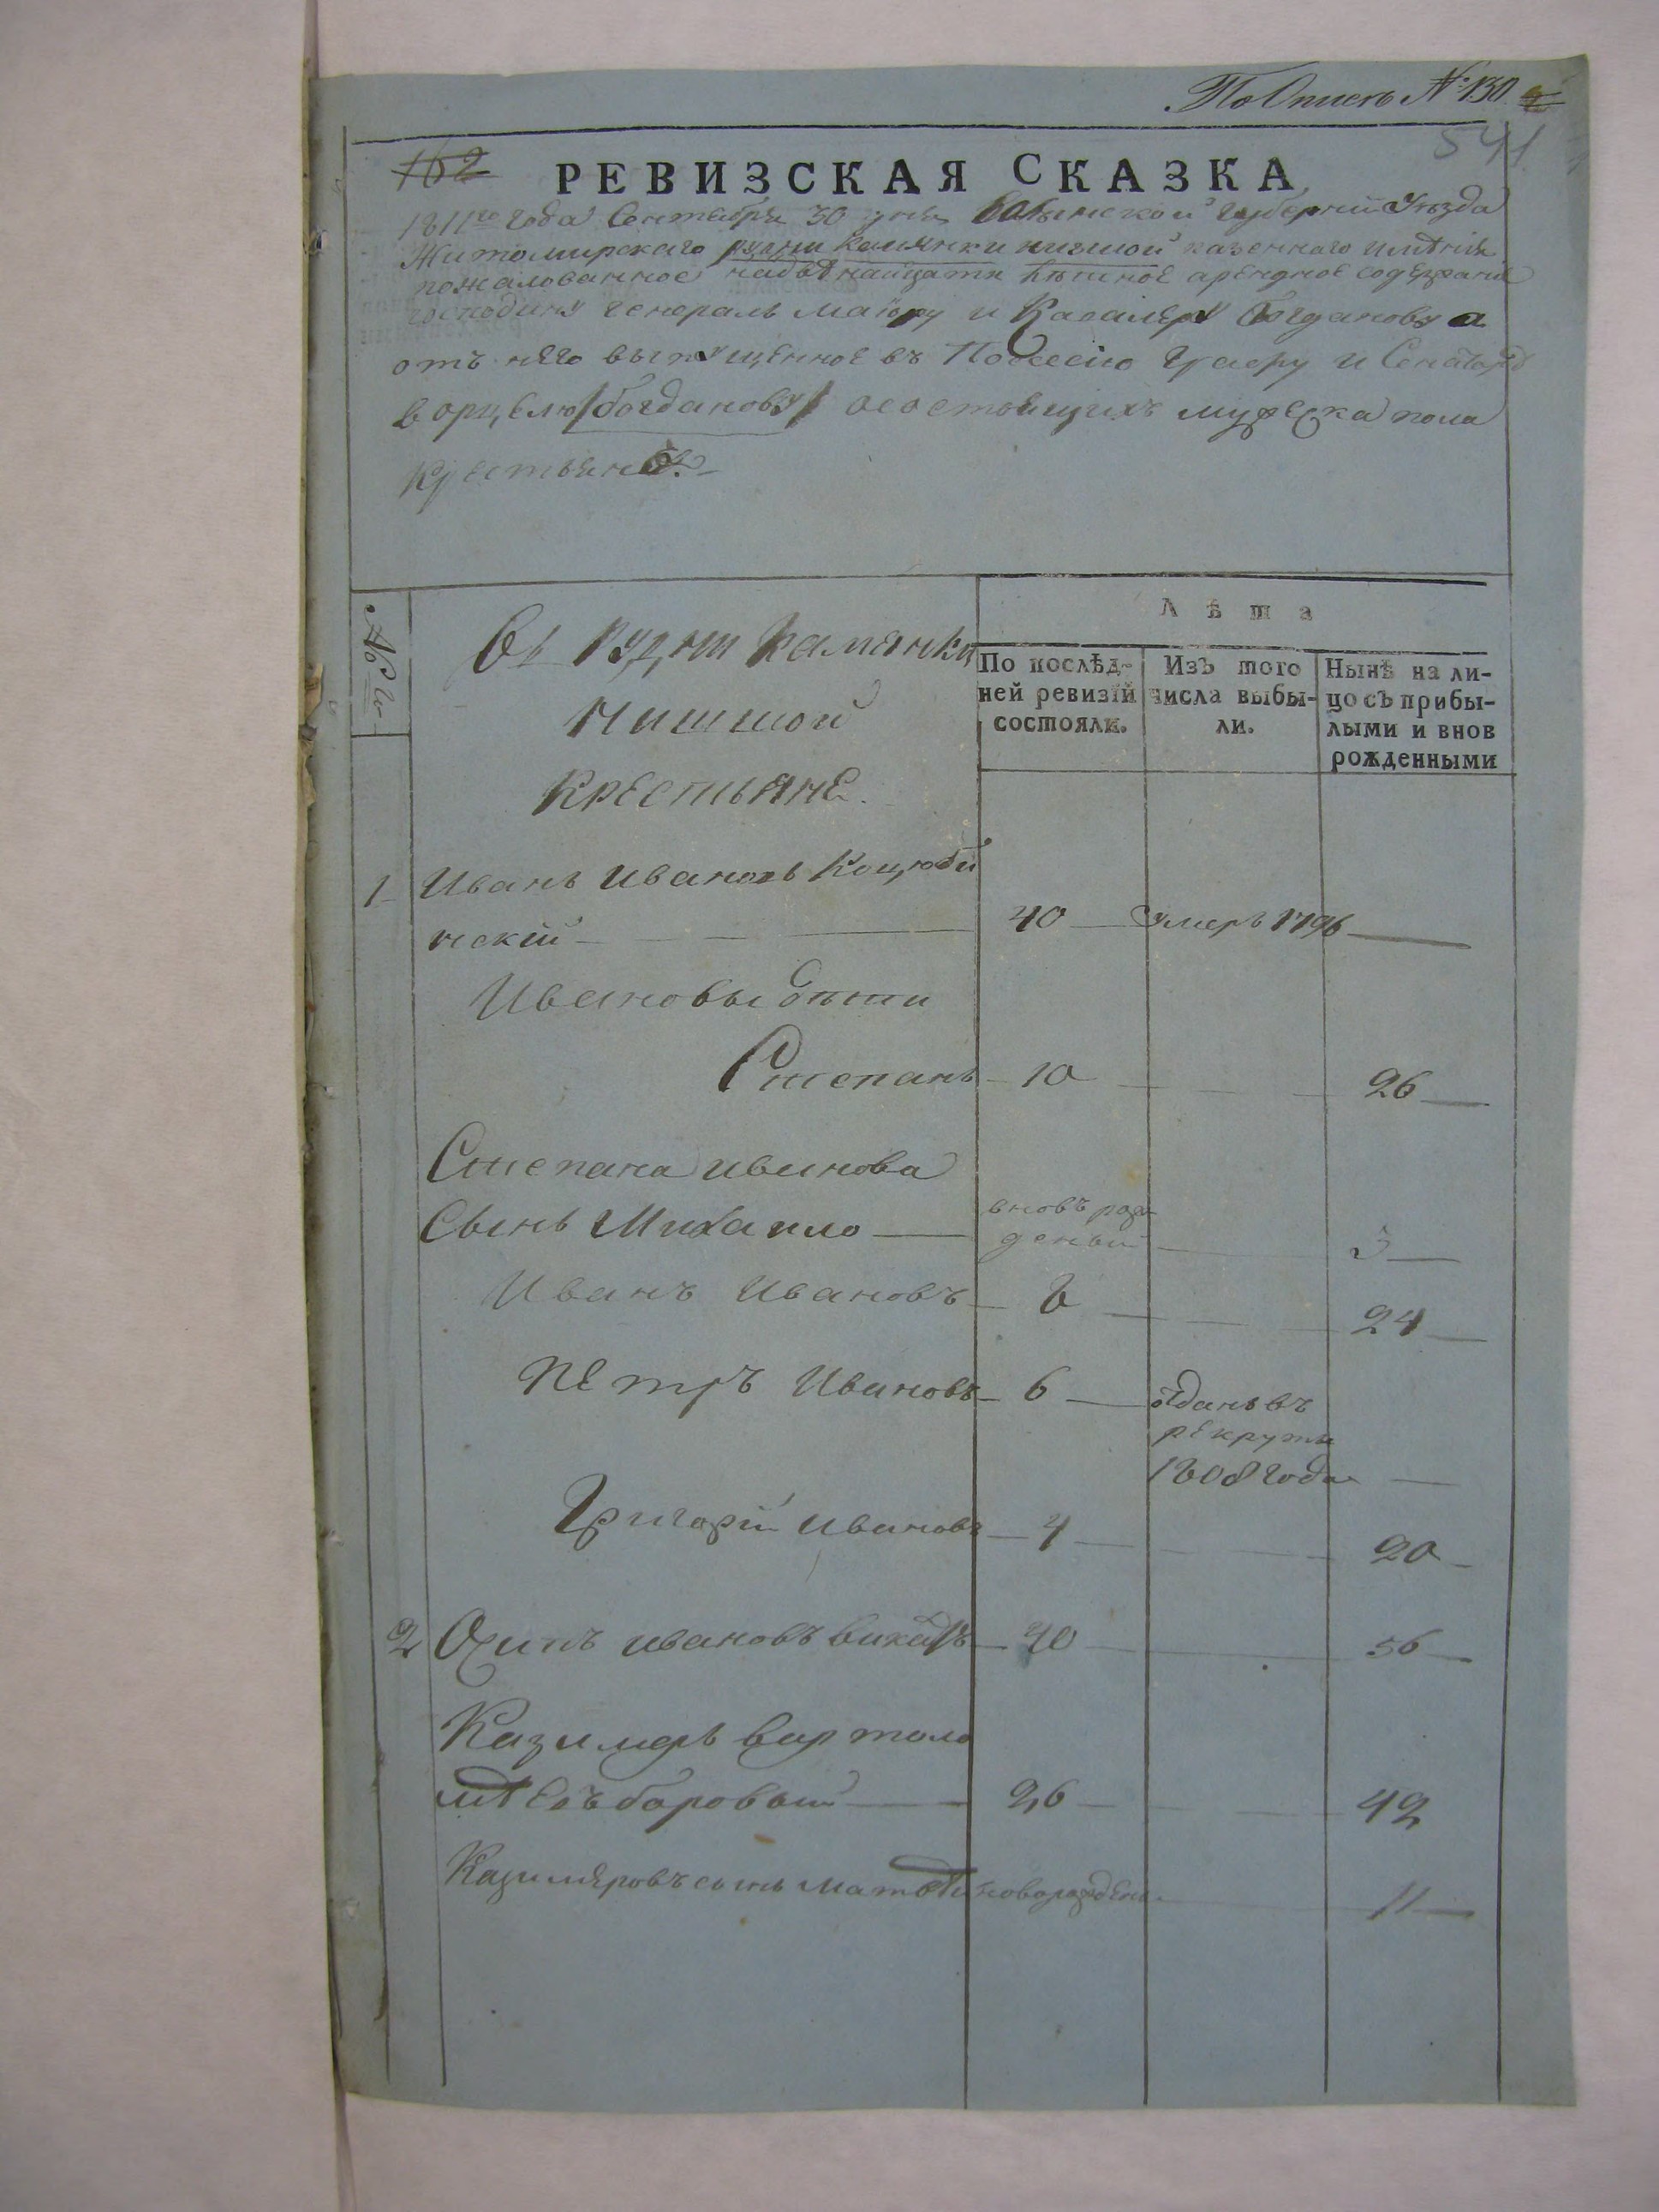 По Описи № 130.
541
162
РЕВИЗСКАЯ СКАЗКА
1811го года Сентебря 30 дня Волынской Губернии Уезда
Житомирскаго рудни Камянки низшой казенного имѣния
пожалованное надвѣнайцати лѣтное арендное содержание
господину генераль маиору и Кавалеру Богданову а
отъ него выпущенное въ Посессию Графу и Сенатору
Ворцелю /богданову/ осостоящихъ мужеска пола
Крестьянѣ.
№
Въ Рудни Камянки
нишшой
Крестьяне.
Лѣта
По послѣд-
ней ревизій
состояли.
Изъ того
числа выбы-
ли.
Нынѣ на ли-
цо съ прибы-
лыми и внов
рожденными
1 Иванъ Ивановъ Коцюби
нский 40 Умеръ 1796
Ивановы дѣти
Степанъ 10 26
Степана Иванова
Сынъ Михайло вновь рож
деный 3
Иванъ Ивановъ 8 24
Петръ Ивановъ 6 отданъ въ
рекруты
1808 года
Григорий Ивановъ 4 20
2 Осипъ Ивановъ 40 56
Казимеръ Вартоло
мѣевъ боровый 26 42
Казимеровъ сынъ Матвѣй новорожден 11